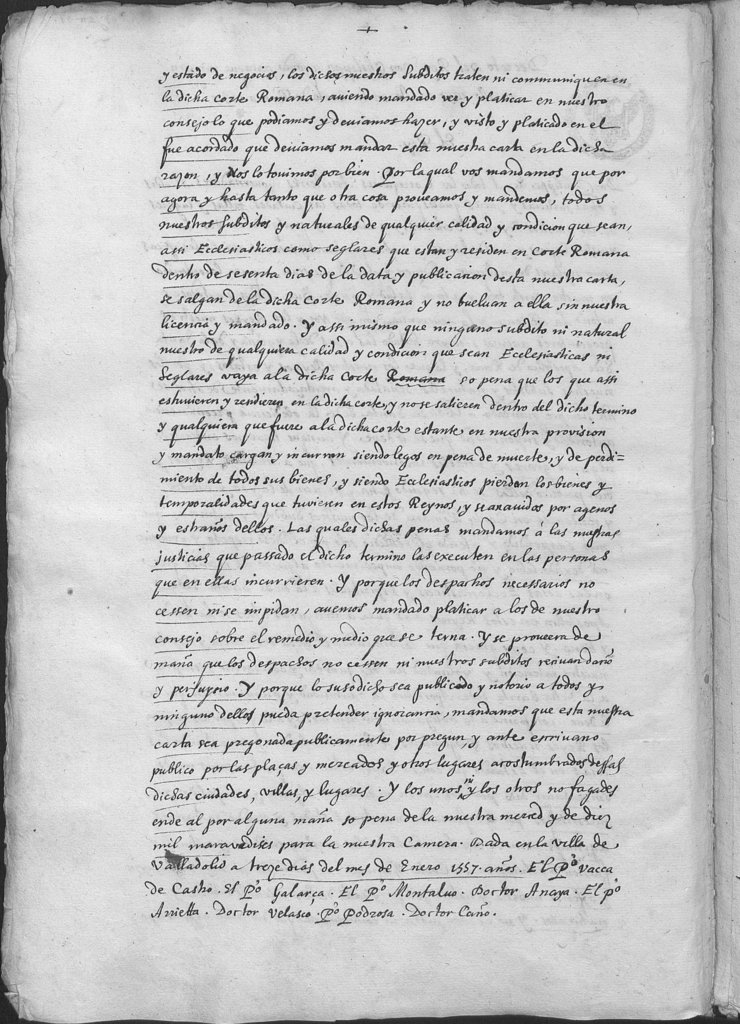 +
y estado de negocios, los dichos nuestros subditos traten ni communiquen en
la dicha corte Romana, auiendo mandado ver y platicar en nuestro
consejo lo que podiamos y deuiamos hazer, y visto y platicado en el
fue acordado que deuiamos mandar esta nuestra carta en la dicha
razon, y Nos lo touimos por bien. Por la qual vos mandamos que por
agora y hasta tanto que otra cosa proueamos y mandemos, todos
nuestros subditos y naturales de qualquier calidad y condicion que sean,
assi Ecclesiasticos como seglares que estan y residen en Corte Romana
dentro de sesenta dias de la data y publicacion desta nuestra carta,
se salgan de la dicha Corte Romana y no bueluan a ella sin nuestra
licencia y mandado. Y assi mismo que ninguno subdito ni natural
nuestro de qualquiera calidad y condicion que sean Ecclesiasticas ni
seglares vaya a la dicha Corte Romana so pena que los que assi
estuuieren y residieren en la dicha corte, y no se salieren dentro del dicho termino
y qualquiera que fuere a la dicha corte estante en nuestra prouision
y mandato cargan y incurran siendo legos en pena de muerte, y de perdi=
miento de todos sus bienes, y siendo Ecclesiasticos pierdan los bienes y
temporalidades que tuuieren en estos Reynos, y sean auidos por agenos
y estraños dellos. Las quales dichas penas mandamos á las nuestras
justicias que passado el dicho termino las executen en las personas
que en ellas incurrieren. Y porque los despachos necessarios no
cessen ni se impidan, auemos mandado platicar a los de nuestro
consejo sobre el remedio y medio que se terna. Y se proueera de
maña que los despachos no cessen ni nuestros subditos reciuan daño
y perjuyzio. Y porque lo susodicho sea publicado y notorio a todos y
ninguno dellos pueda pretender ignorancia, mandamos que esta nuestra
carta sea pregonada publicamente por pregon, y ante escriuano
publico por las plaças y mercados y otros lugares acostumbrados dessas
dichas ciudades, villas, y lugares. Y los unos ni los otros no fagades
ende al por alguna maña so pena de la nuestra merced y de diez
mil marauedises para la nuestra Camera. Dada en la villa de
Valladolid a treze dias del mes de Enero 1557 años. El Pº vacca
de Castro. El Pº Galarça. El Pº Montaluo. Doctor Anaya. El pº
Arrietta. Doctor Velasco. Pº Pedrosa. Doctor Caño.